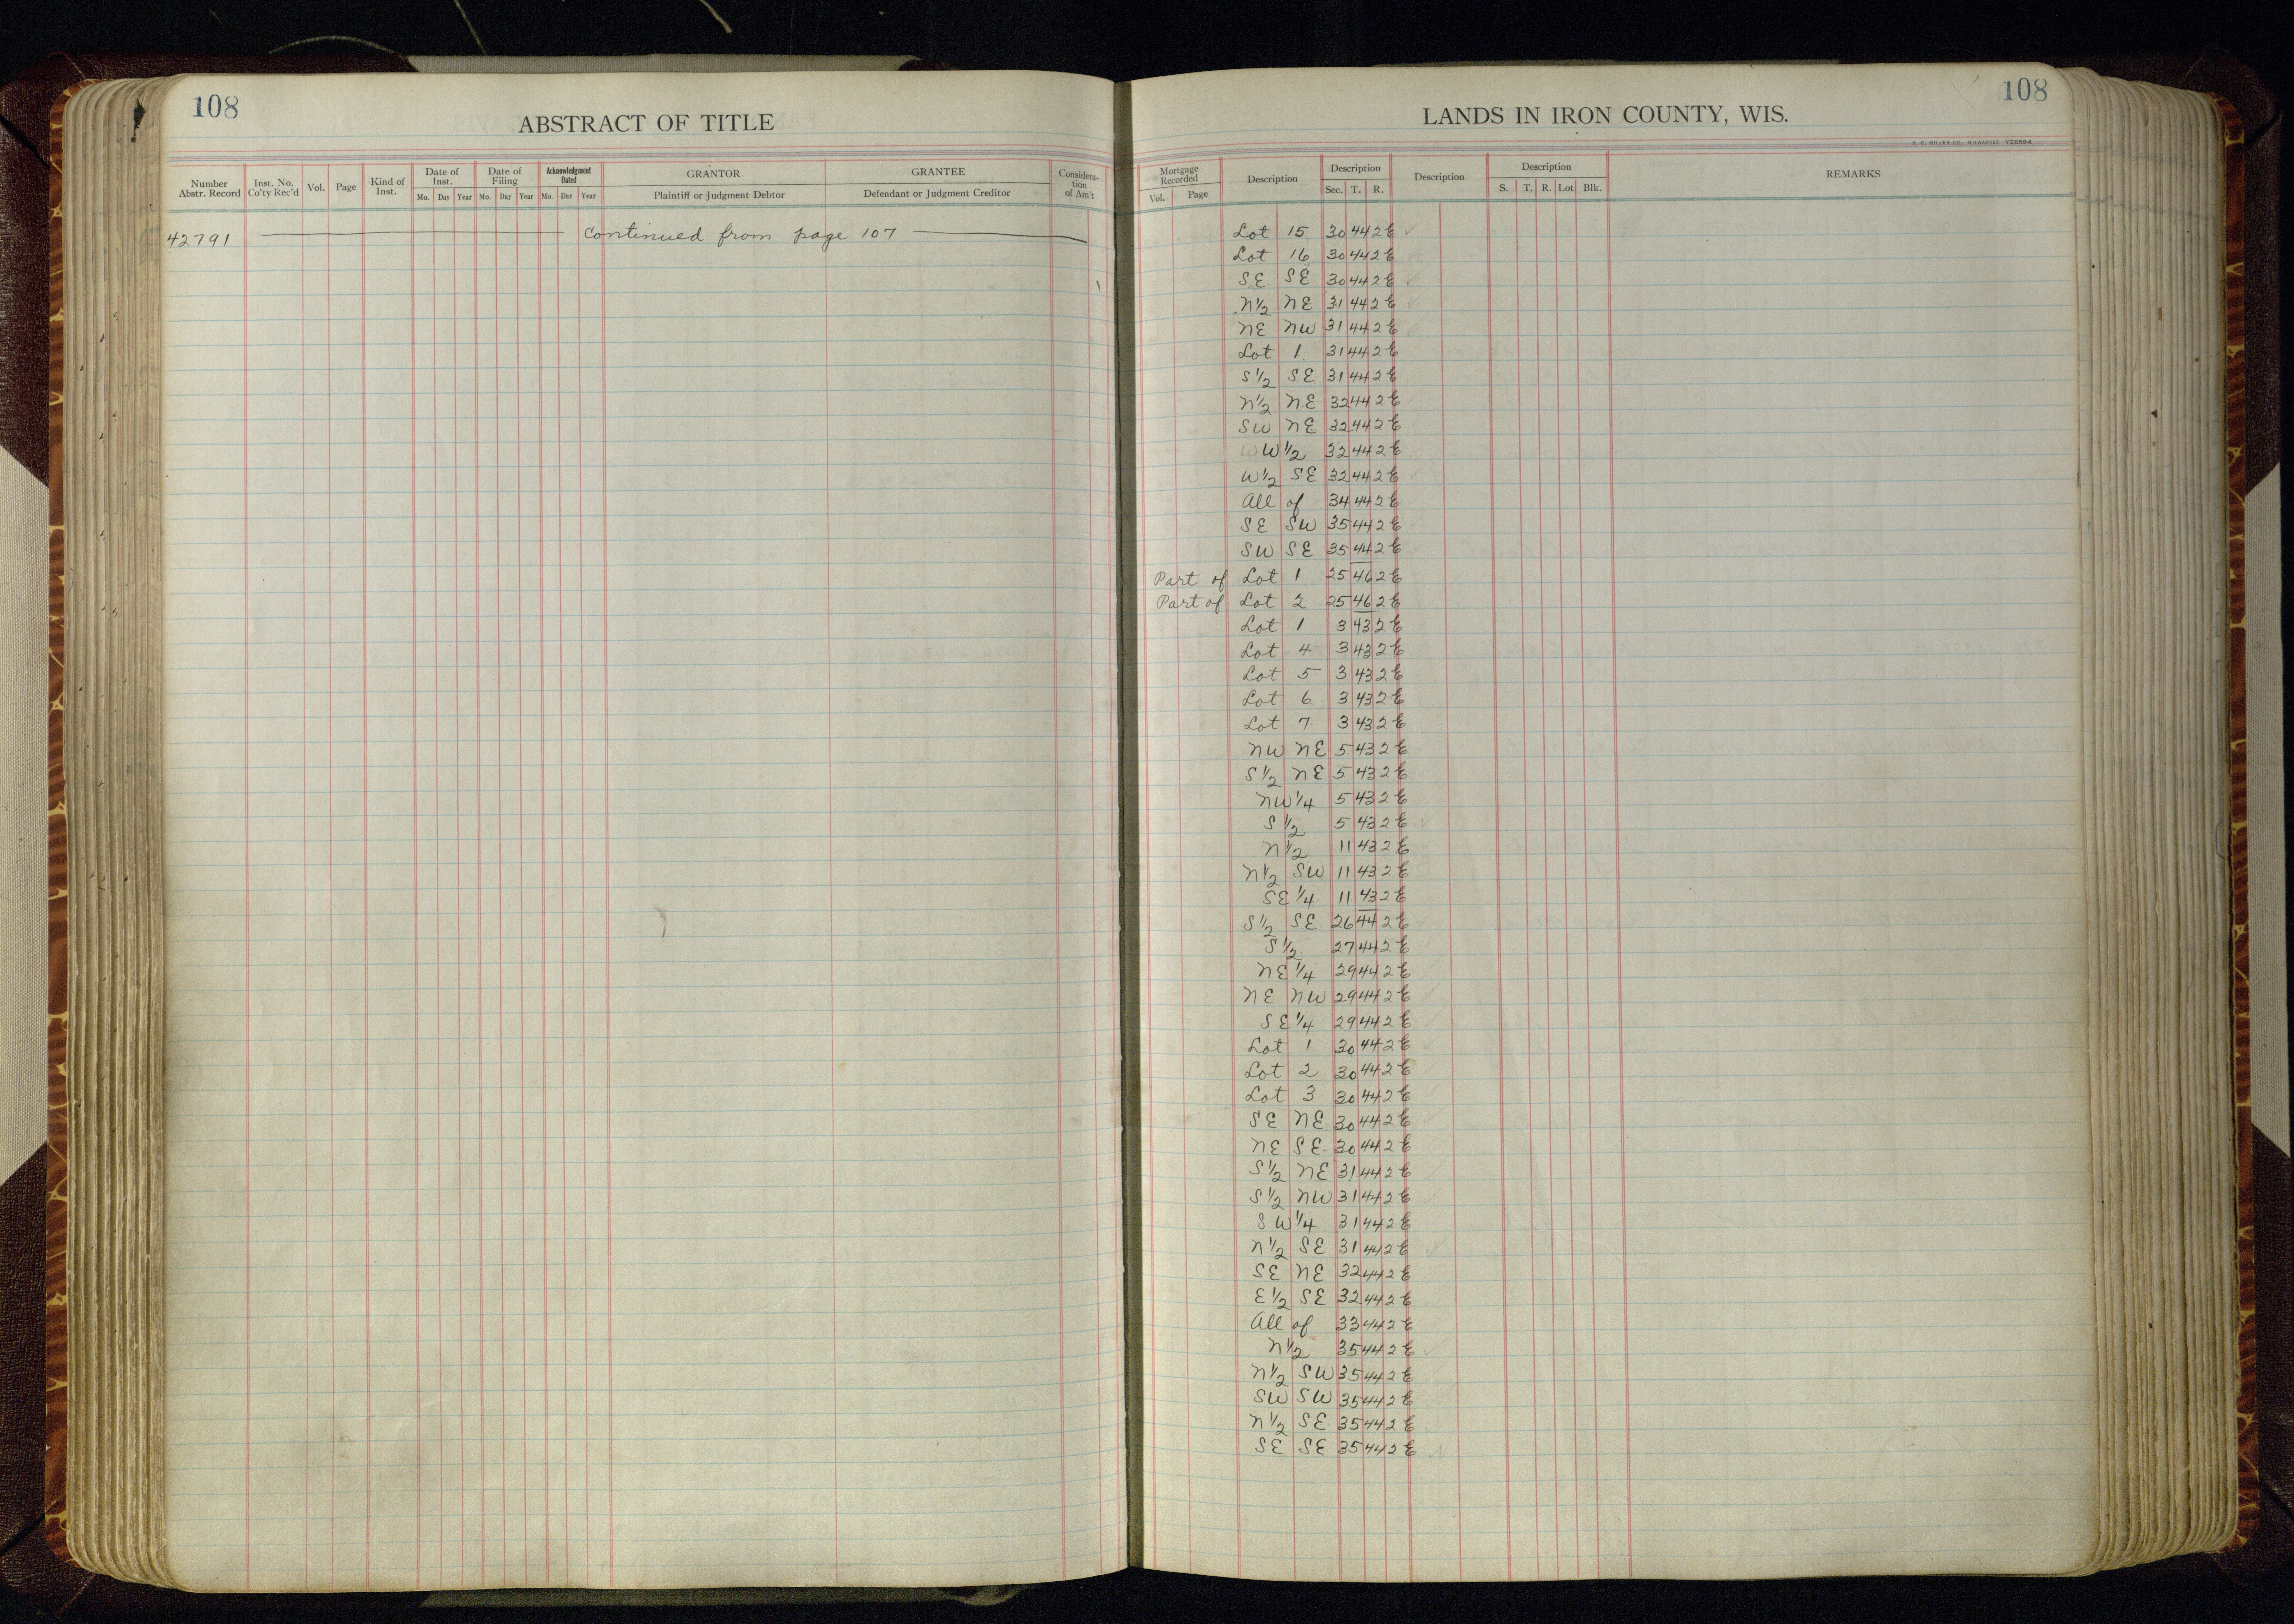 108
ABSTRACT OF TITLE
Number Abstr. Record
Inst. No. Co'ty Rec'd
Vol.
Page
Kind of Inst.
Date of Inst.
Mo. Day Year
Date of Filing
Mo. Day Year
Acknowledgment Dated
Mo. Day Year
GRANTOR
Plaintiff or Judgment Debtor
GRANTEE
Defendant or Judgment Creditor
Considera-
tion
of Am't
42791 continued from page 107
108
LANDS IN IRON COUNTY, WIS.
H. C. MILLER CO., MILWAUKEE Y28594
Mortgage Recorded
Vol. Page
Description
Description
Sec. T. R.
Description
Description
S. T. R. Lot Blk.
REMARKS
Lot 15 30 44 2 E
Lot 16 30 44 2 E
SE SE 30 44 2 E
N1/2 NE 31 44 2 E
NE NW 31 44 2 E
Lot 1 31 44 2 E
S1/2 SE 31 44 2 E
N1/2 NE 32 44 2 E
SW NE 32 44 2 E
W1/2 32 44 2 E
W1/2 SE 32 44 2 E
All of 34 44 2 E
SE SW 35 44 2 E
SW SE 35 44 2 E
Part of Lot 1 25 46 2 E
Part of Lot 2 25 46 2 E
Lot 1 3 43 2 E
Lot 4 3 43 2 E
Lot 5 3 43 2 E
Lot 6 3 43 2 E
Lot 7 3 43 2 E
NW NE 5 43 2 E
S1/2 NE 5 43 2 E
NW1/4 5 43 2 E
S1/2 5 43 2 E
N1/2 11 43 2 E
N1/2 SW 11 43 2 E
SE1/4 11 43 2 E
S1/2 SE 26 44 2 E
S1/2 27 44 2 E
NE1/4 29 44 2 E
NE NW 29 44 2 E
SE1/4 29 44 2 E
Lot 1 30 44 2 E
Lot 2 30 44 2 E
Lot 3 30 44 2 E
SE NE 30 44 2 E
NE SE 30 44 2 E
S1/2 NE 31 44 2 E
S1/2 NW 31 44 2 E
SW1/4 31 44 2 E
N1/2 SE 31 44 2 E
SE NE 32 44 2 E
E1/2 SE 32 44 2 E
All of 33 44 2 E
N1/2 35 44 2 E
N1/2 SW 35 44 2 E
SW SW 35 44 2 E
N1/2 SE 35 44 2 E
SE SE 35 44 2 E